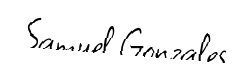 Samuel Gonzales